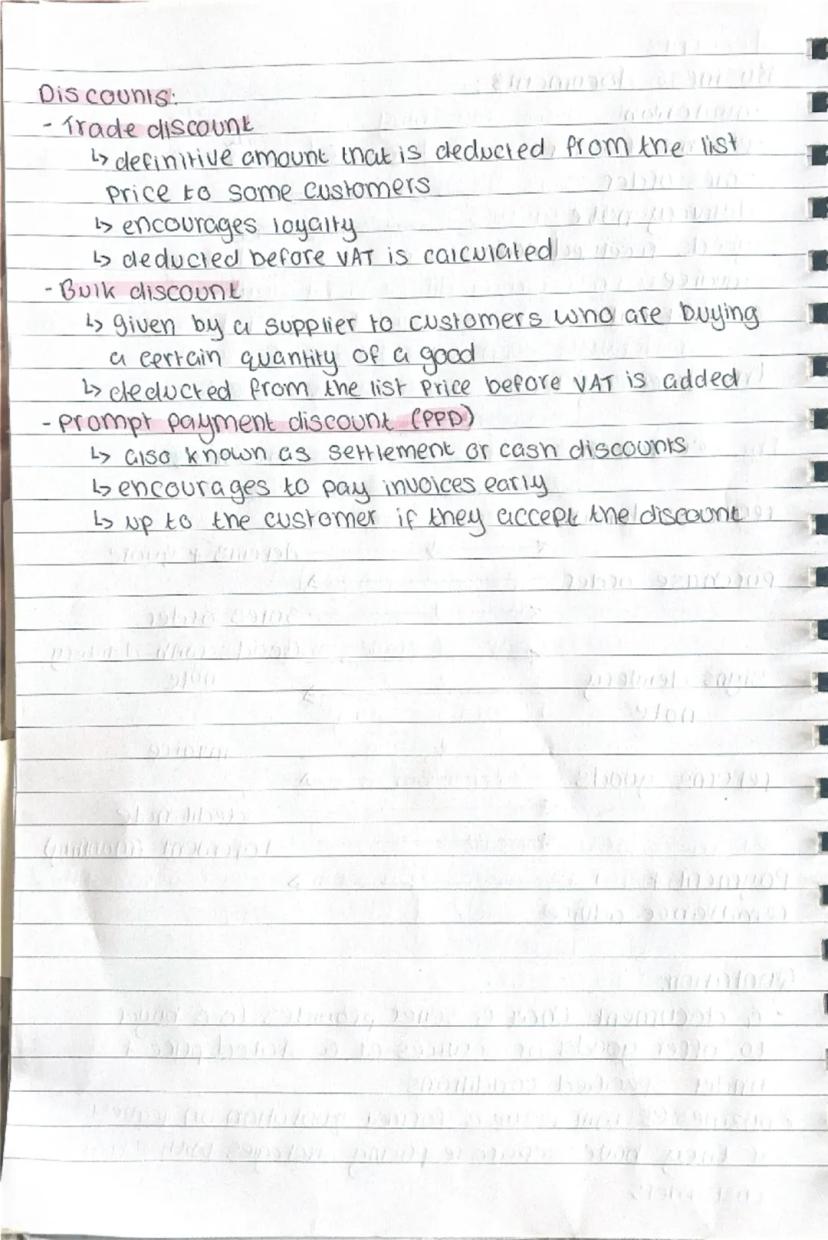 Discounts:
- Trade discount
↳ definitive amount that is deducted from the list
price to some customers
↳ encourages loyalty
↳ deducted before VAT is calculated
- Bulk discount
↳ given by a supplier to customers who are buying
a certain quantity of a good
↳ deducted from the list price before VAT is added
- prompt payment discount (PPD)
↳ also known as settlement or cash discounts
↳ encourages to pay invoices early
↳ up to the customer if they accept the discount